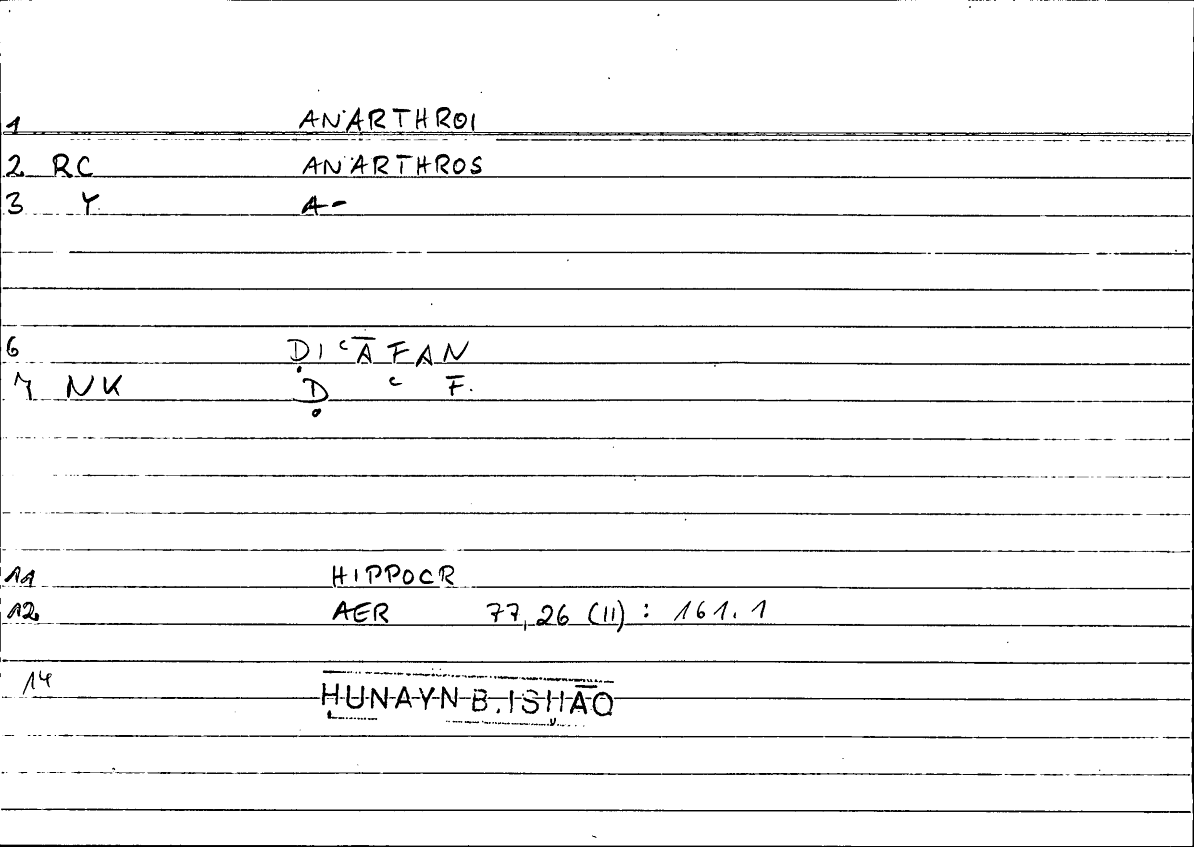 1 AN'ARTHROI
2 RC AN'ARTHROS
3 Y A-
6 ḌIʿĀFAN
7 NK Ḍ ʿ F.
11 HIPPOCR
12 AER 77,26 (II) : 161.1
14 ḤUNAYN B. ISḤĀQ